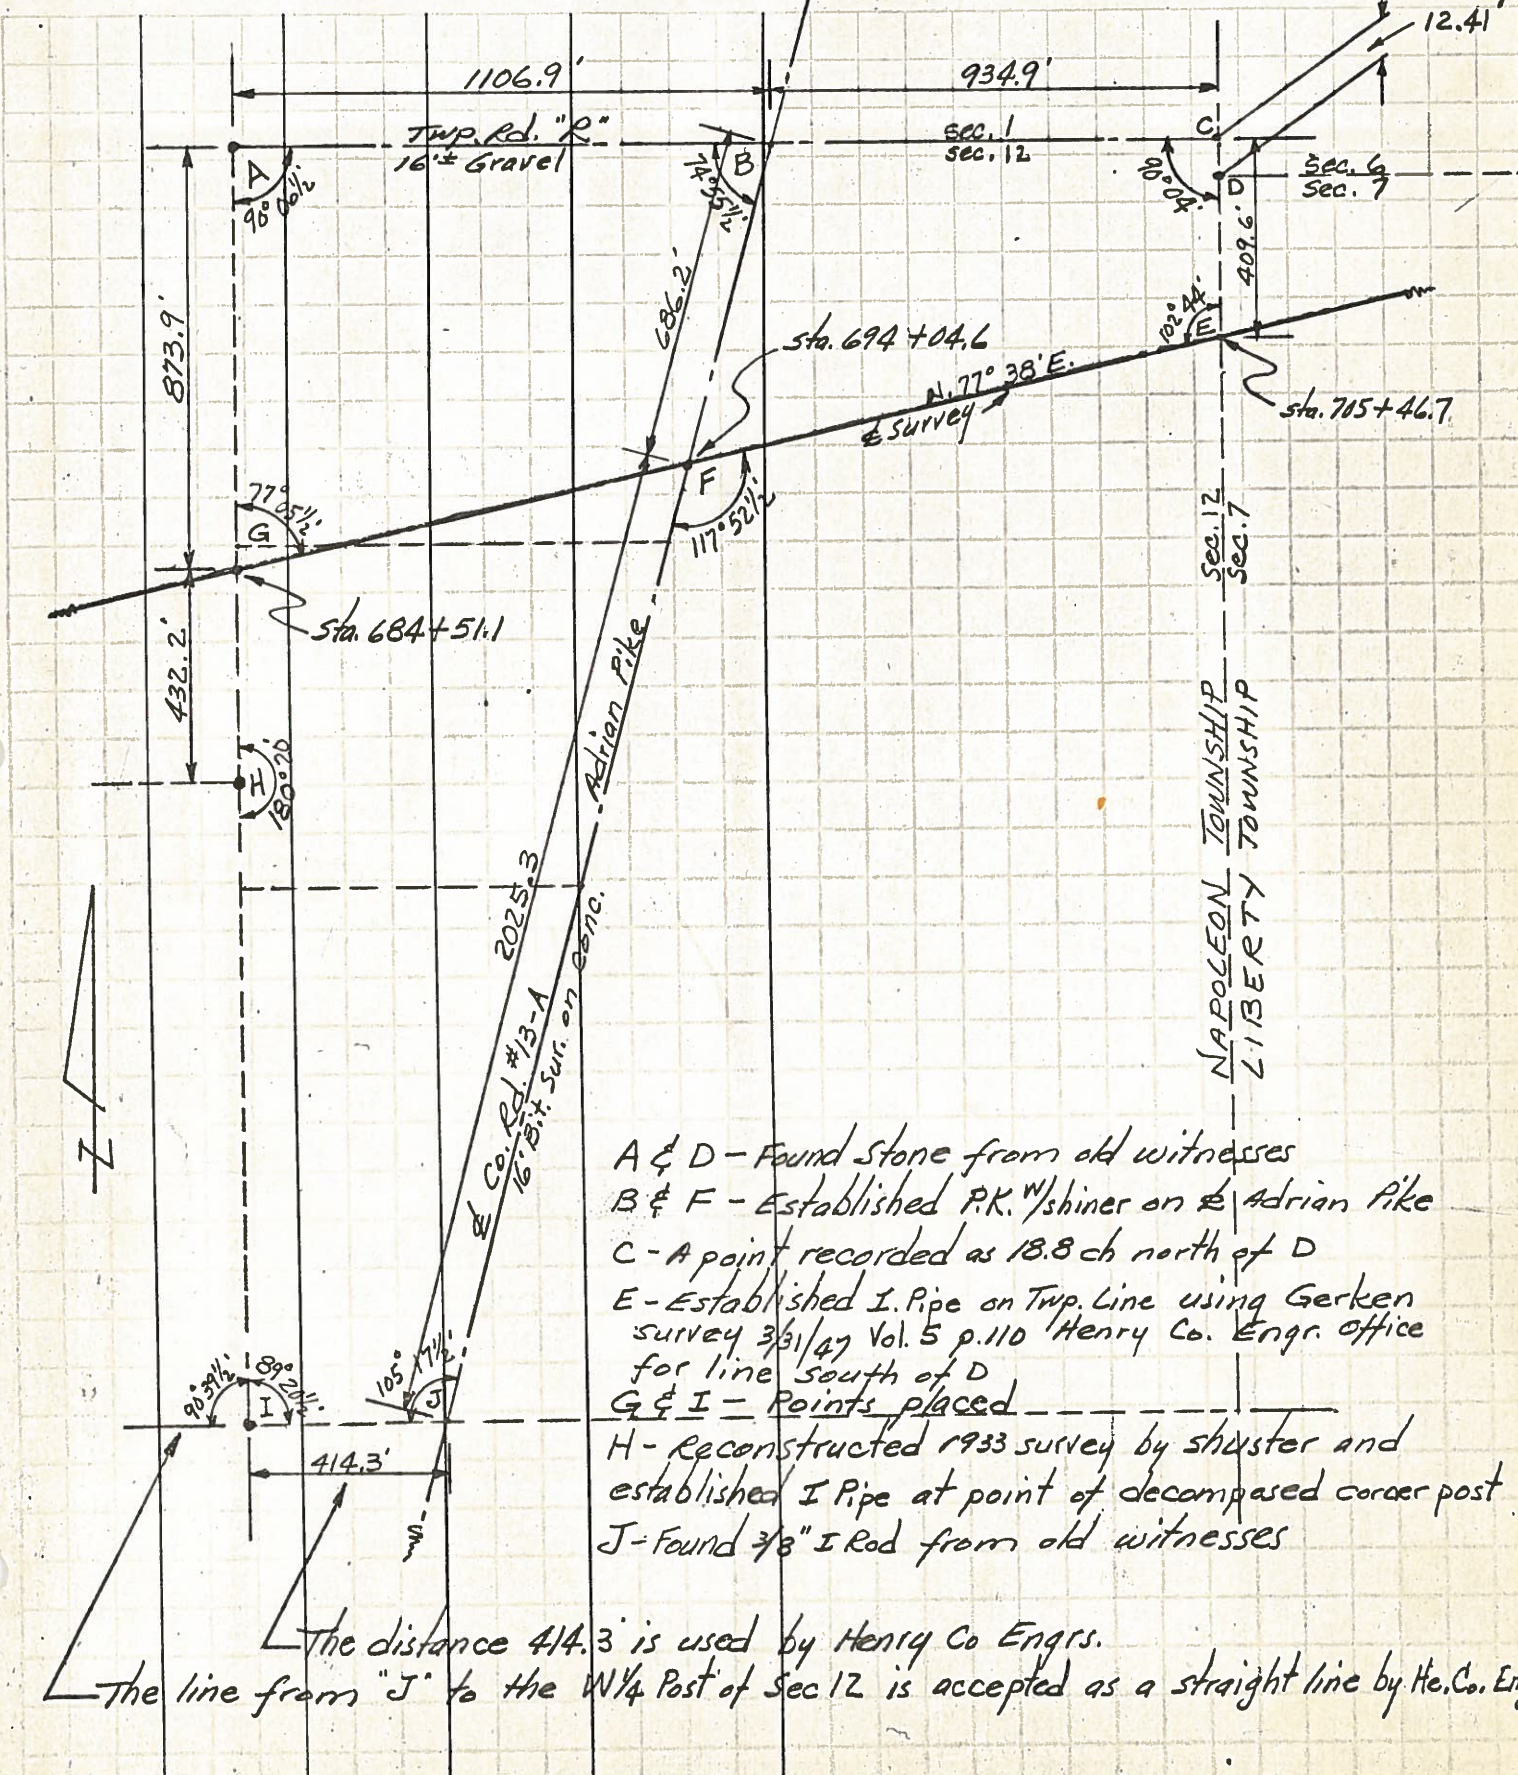 12.41'
1106.9'
934.9'
Twp. Rd. "R"
16'± Gravel
sec. 1
sec. 12
A
90°06½'
B
74°55½'
C
D
90°04'
sec. 6
sec. 7
409.6'
873.9'
686.2'
sta. 694 + 04.6
N. 77° 38' E.
℄ survey
102° 44'
E
sta. 705 + 46.7
77°05½'
G
F
117°52½'
Sec. 12
Sec. 7
sta. 684 + 51.1
432.2'
H
180°20'
Adrian Pike
2025.3
℄ Co. Rd. #13-A
16' Bit. Sur. on conc.
NAPOLEON TOWNSHIP
LIBERTY TOWNSHIP
A & D - Found Stone from old witnesses
B & F - Established P.K. w/shiner on ℄ Adrian Pike
C - A point recorded as 18.8 ch north of D
E - Established I. Pipe on Twp. Line using Gerken
survey 3/31/47 Vol. 5 p. 110 Henry Co. Engr. Office
for line south of D
G & I - Points placed
H - Reconstructed 1933 survey by Shuster and
established I Pipe at point of decomposed corner post
J - Found 3/8" I Rod from old witnesses
90°39½'
89°20½'
I
105°17½'
J
414.3'
N
The distance 414.3' is used by Henry Co Engrs.
The line from "J" to the W¼ Post of Sec 12 is accepted as a straight line by He. Co. En